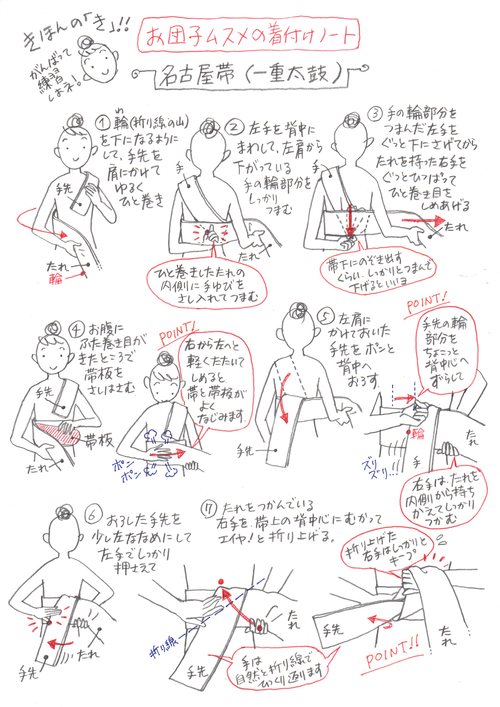 きほんの「き」!!
がんばって
練習
しよネ!
お団子ムスメの着付けノート
名古屋帯(一重太鼓)
①輪(折り線の山)
わ
を下になるように
して、手先を
肩にかけて
ゆるく
ひと巻き
手先
たれ
輪
②左手を背中に
まわして、左肩から
下がっている
手の輪部分を
しっかり
つまむ
手
たれ
ひと巻きしたたれの
内側に手ゆびを
さし入れてつまむ
③手の輪部分を
つまんだ左手を
ぐっと下にさげてから
たれを持った右手を
ぐっとひっぱって
ひと巻き目を
しめあげる
手
たれ
帯下にのぞき出す
くらい、しっかりとつまんで
下げるといいヨ
④お腹に
ふた巻き目が
きたところで
帯板を
さしはさむ
手先
帯板
たれ
POINT!
右から左へと
軽くたたいて
しめると
帯と帯板が
よく
なじみます
ポン
ポン
⑤左肩に
かけておいた
手先をポンと
背中へ
おろす
手先
たれ
POINT!
手先の輪
部分を
ちょこっと
背中心へ
ずらして
輪
ズリ
ズリ...
手先
たれ
右手は、たれを
内側から持ち
かえてしっかり
つかむ
⑥おろした手先を
少し左ななめにして
左手でしっかり
押さえて
手先
たれ
⑦たれをつかんでいる
右手を、帯上の背中心にむかって
エイヤ!と折り上げる。
折り線
手先
たれ
手は
自然と折り線で
ひっくり返ります
折り上げた
右手はしっかりと
キープ
手先
たれ
POINT!!